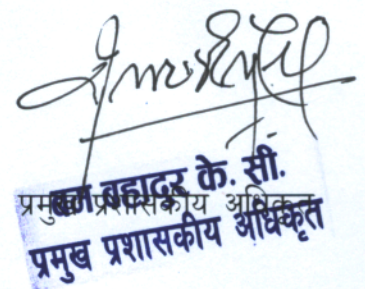 बहादुर के. सी.
प्रमुख प्रशासकीय अधिकृत
प्रमुख प्रशासकीय अधिकृत